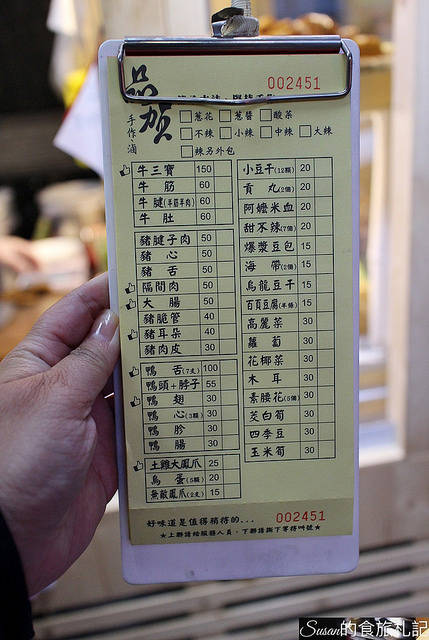 002451
品加
手作滷
□蔥花 □蔥醬 □酸菜
□不辣 □小辣 □中辣 □大辣
□辣另外包
牛三寶 150
牛筋 60
牛腱(半筋半肉) 60
牛肚 60
豬腱子肉 50
豬心 50
豬舌 50
隔間肉 50
大腸 50
豬脆管 40
豬耳朵 40
豬肉皮 30
鴨舌(7支) 100
鴨頭+脖子 55
鴨翅 30
鴨心(3顆) 30
鴨胗 30
鴨腸 30
土雞大鳳爪 25
鳥蛋(5顆) 20
無骨鳳爪(2支) 15
小豆干(12顆) 20
貢丸(2個) 20
阿嬤米血 20
甜不辣(7個) 20
爆漿豆包 15
海帶(2個) 15
烏龍豆干 15
百頁豆腐(半條) 15
高麗菜 30
蘿蔔 30
花椰菜 30
木耳 30
素腰花(5個) 30
茭白筍 30
四季豆 30
玉米筍 30
好味道是值得稍待的...
002451
★上聯請給服務人員,下聯請撕下等待叫號★
Susan的食旅札記